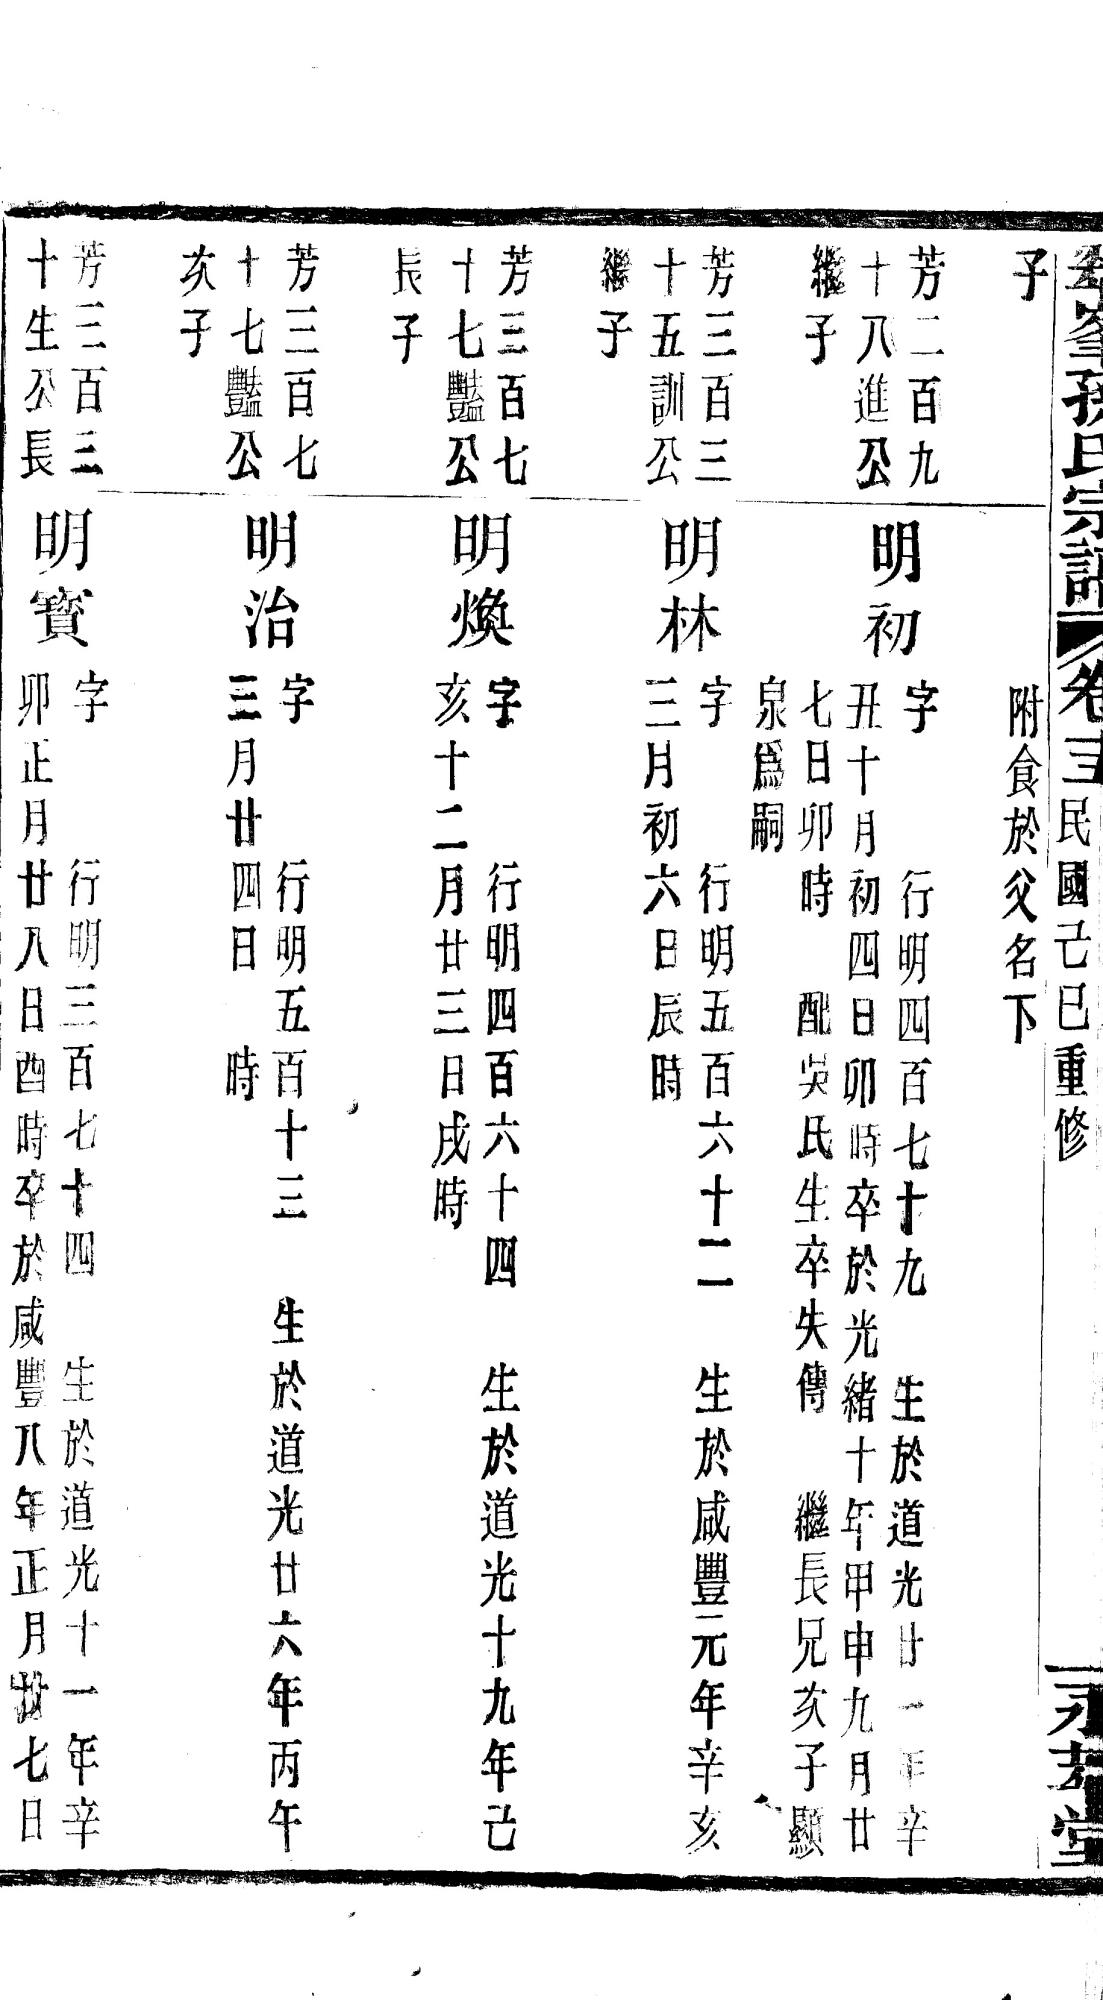 峯孫氏宗譜 卷 民國己巳重修 堂
子
附食於父名下
芳二百九
十八進公
繼子
明初
字 行明四百七十九 生於道光廿一年辛
丑十月初四日卯時卒於光緒十年甲申九月廿
七日卯時 配吳氏生卒失傳 繼長兄次子顯
泉爲嗣
芳三百三
十五訓公
繼子
明林
字 行明五百六十二 生於咸豐元年辛亥
三月初六日辰時
芳三百七
十七豔公
長子
明煥
字 行明四百六十四 生於道光十九年己
亥十二月廿三日戌時
芳三百七
十七豔公
次子
明治
字 行明五百十三 生於道光廿六年丙午
三月廿四日 時
芳三百三
十生公長
明寳
字 行明三百七十四 生於道光十一年辛
卯正月廿八日酉時卒於咸豐八年正月 七日